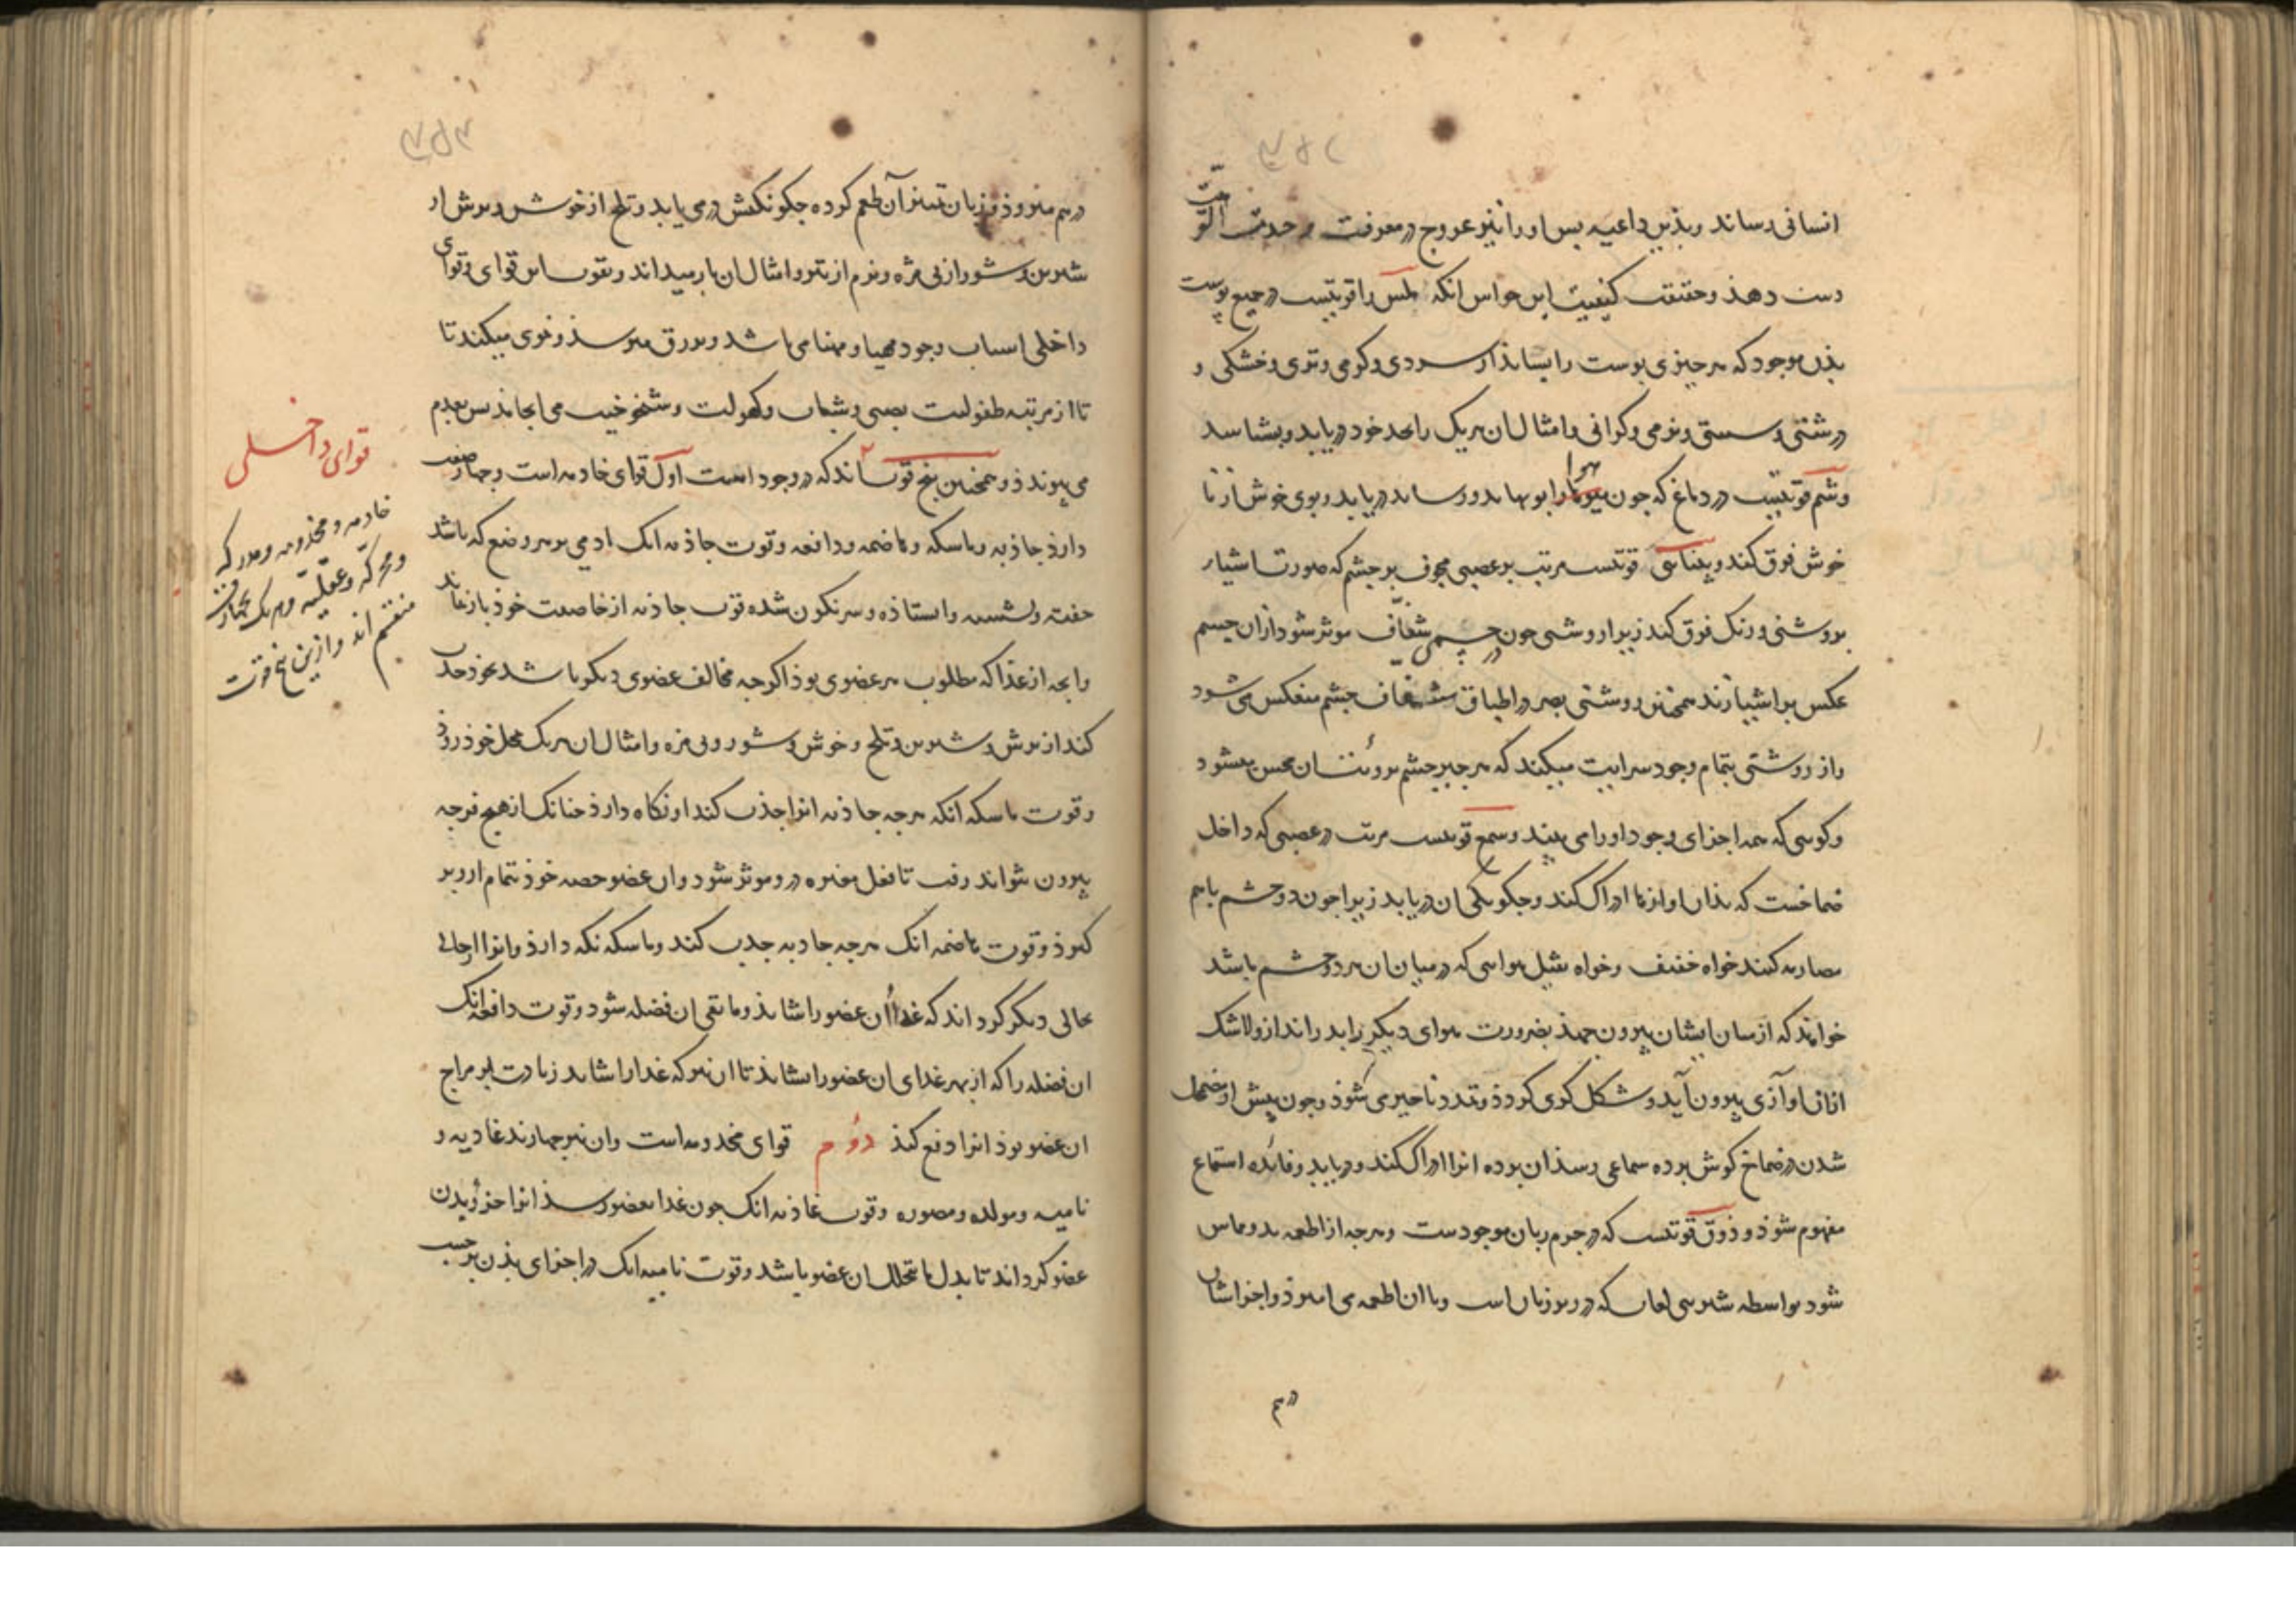 انسانی رساند و بذین داعیه بس او را نیز عروج در معرفت وحدت الوهیت
دست دهذ و حقیقت کیفیت این حواس انکه لمس را قوتیست در جمیع پوست
بذن موجود که هر چیزی بوست را بساید از سردی و گرمی و تری و خشکی و
درشتی و سستی و نرمی و کرانی و امثال ان هر یک را بحد خود دریابد و بشناسد
و شم قوتیست در دماغ که جون هوا بویها بدو رساند دریابد و بوی خوش از نا
خوش فرق کند و بینائی قوتیست مرتب بر عصبی مجوف بر جشم که صورت اشیا را
بروشنی و رنک فرق کند زیرا روشنی جون در جسمی شفاف موثر شود از ان جسم
عکس بر اشیا زند همجنین روشنی بصر در اطباق شفاف جشم منعکس می شود
و از روشنی بتمام وجود سرایت میکند که هر جه بر جشم محسن میشود
و کوئی که همه اجزای وجود او را می بیند و سمع قوتیست مرتب در عصبی که داخل
صماخست که بذان اوازها ادراک کند و جکونکی ان دریابد زیرا جون دو جسم باهم
مصادمه کنند خواه خفیف و خواه ثقیل هوائی که در میان ان هر دو جسم باشد
خواهد که از میان ایشان بیرون جهذ بضرورت هوای دیکر را بدر اندازد و لاشک
از ان اوازی بیرون آید و شکل کری کردذ و تا حیزی شوذ و جون پیش از مضمحل
شدن در صماخ کوش برده سماعی رسذ ان برده انرا ادراک کند و دریابد و فائده استماع
مفهوم شوذ و ذوق قوتیست که در جرم زبان موجودست و هرجه از اطعمه بدو مماس
شود بواسطه شیرینی لعاب که در زیر زبان است و با ان اطعمه می امیزذ و اجزا اشان
درهم
درهم میروذ و زبان آن طعم کرده جکونکیش درمی یابد و تلخ از خوش و ترش از
شیرین و شور از بی مزه و نرم از و امثال ان باز میداند و بقوت این قوای و قوای
داخلی اسباب وجود مهیا و مهنا می باشد و میرسذ و قوی میکند تا
تا از مرتبه طفولیت بصبی و شباب و کهولت و شیخوخیت می انجامد بس بعدم
می پیوندذ و همجنین بنج قوت اند که در وجود است اول قوای خادمه است و جهار صفت
دارذ جاذبه و ماسکه و هاضمه و دافعه و قوت جاذبه انک ادمی بر هر وضع که باشد
خفته و نشسته و ایستاذه و سرنکون شده قوت جاذبه از خاصیت خوذ باز نماند
و انجه از غذا که مطلوب هر عضوی بوذ اکرجه مخالف عضوی دیکر باشد بخوذ جذب
کند از ترش و شیرین و تلخ و خوش و شور و بی مزه و امثال ان هر یک بمحل خوذ رود
و قوت ماسکه انکه هرجه جاذبه انرا جذب کند او نکاه دارذ جنانک از هیج فرجه
بیرون نتواند رفت تا فعل مغیره درو موثر شود و ان عضو حصه خوذ تمام ازو بر
کیرذ و قوت هاضمه انک هرجه جاذبه جذب کند و ماسکه نکه دارذ و انرا از حالی
بحالی دیکر کرداند که غذا ان عضو را شایذ و مابقی ان فضله شود و قوت دافعه انک
ان فضله را که از بهر غذای ان عضو را نشایذ تا ان نیز که غذا را شاید زیادت بر مزاج
ان عضو بوذ انرا دفع کند دوم قوای مخدومه است و ان نیز جهارند غاذیه و
نامیه و مولده و مصوره و قوت غاذیه انک جون غذا بعضو رسذ انرا جزو بدن
عضو کرداند تا بدل ما یتحلل ان عضو باشد و قوت نامیه انک در اجزای بذن برحسب
قوای داخلی
خادمه و مخدومه و مدرکه
و محرکه و عقلیه و هر یک بجهار قوت
منقسم اند و ازین بنج قوت